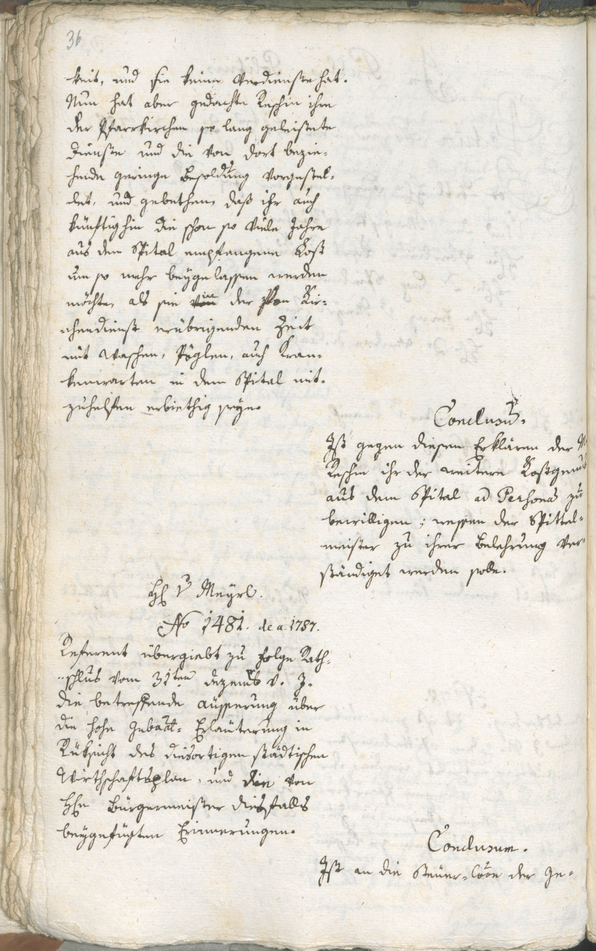 36
keit, und sie keine Verdienste hat.
Nun hat aber gedachte Reschin ihre
der Pfarrkirchen so lang geleistete
Dienste und die von dort bezie-
hende geringe Besoldung vorgestel-
let, und gebethen, daß ihr auch
künftighin die schon so viele Jahre
aus dem Spital empfangene Kost
um so mehr beygelassen werden
möchte, als sie in der von Kir-
chendienst erübrigenden Zeit
mit Waschen, Böglen, auch Kran-
kenwarten in dem Spital mit-
zuhelfen erbiethig seye.
Conclusum.
Ist gegen diesem Erklären der
Reschin ihr der weitere Kostgenuß
aus dem Spital ad Personam zu
bewilligen; wessen der Spittel-
meister zu ihrer Belehrung ver-
ständiget werden solle.
H. v. Mayrl.
No 1481. de a. 1787.
Referent übergiebt zu Folge Rath-
schlus vom 31ten Dezemb. v. J.
die betreffende äusserung über
die hohe Erläuterung in
Rüksicht des diesortigen städtischen
Wirthschaftsplan, und die von
Hn Bürgermeister diesfalls
beygefügten Erinnerungen.
Conclusum.
Ist an die Steuer-Coön der Ge-